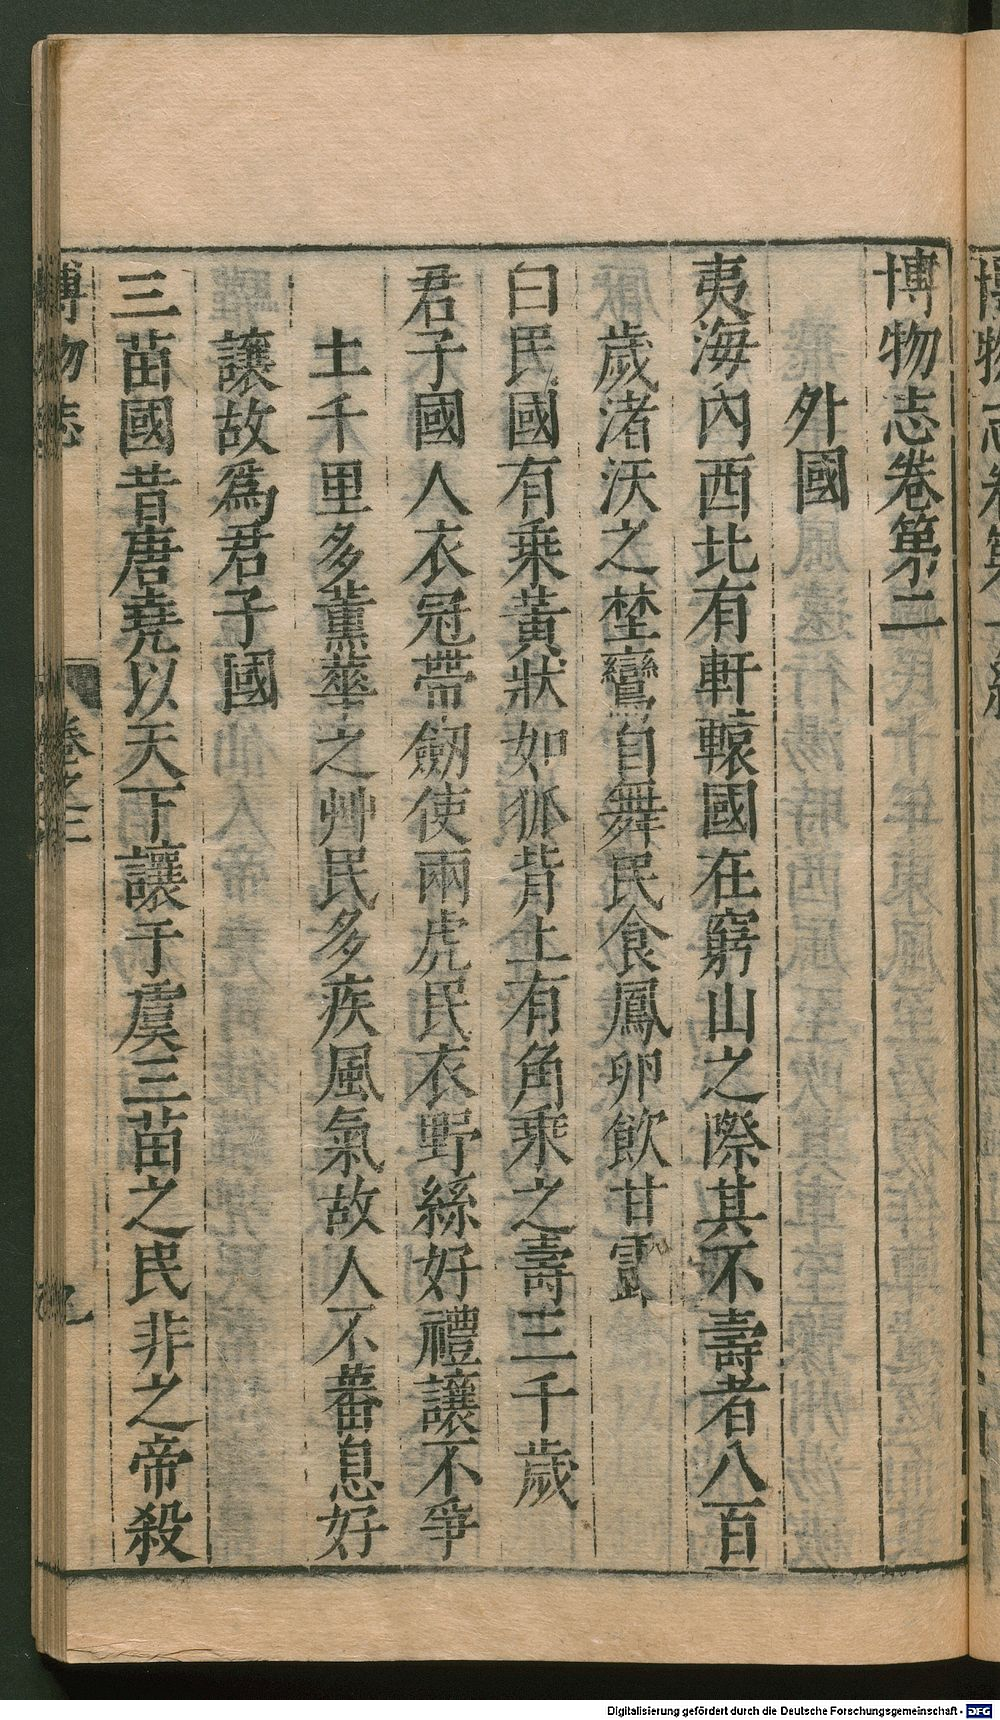 博物志卷第二
外國
夷海內西北有軒轅國在窮山之際其不壽者八百
歲渚沃之埜鸞自舞民食鳳卵飲甘露
白民國有乘黃狀如狐背上有角乘之壽三千歲
君子國人衣冠帶劒使兩虎民衣野絲好禮讓不爭
土千里多薰華之艸民多疾風氣故人不蕃息好
讓故爲君子國
三苗國昔唐堯以天下讓于虞三苗之民非之帝殺
博物志
卷之二
Digitalisierung gefördert durch die Deutsche Forschungsgemeinschaft - DFG